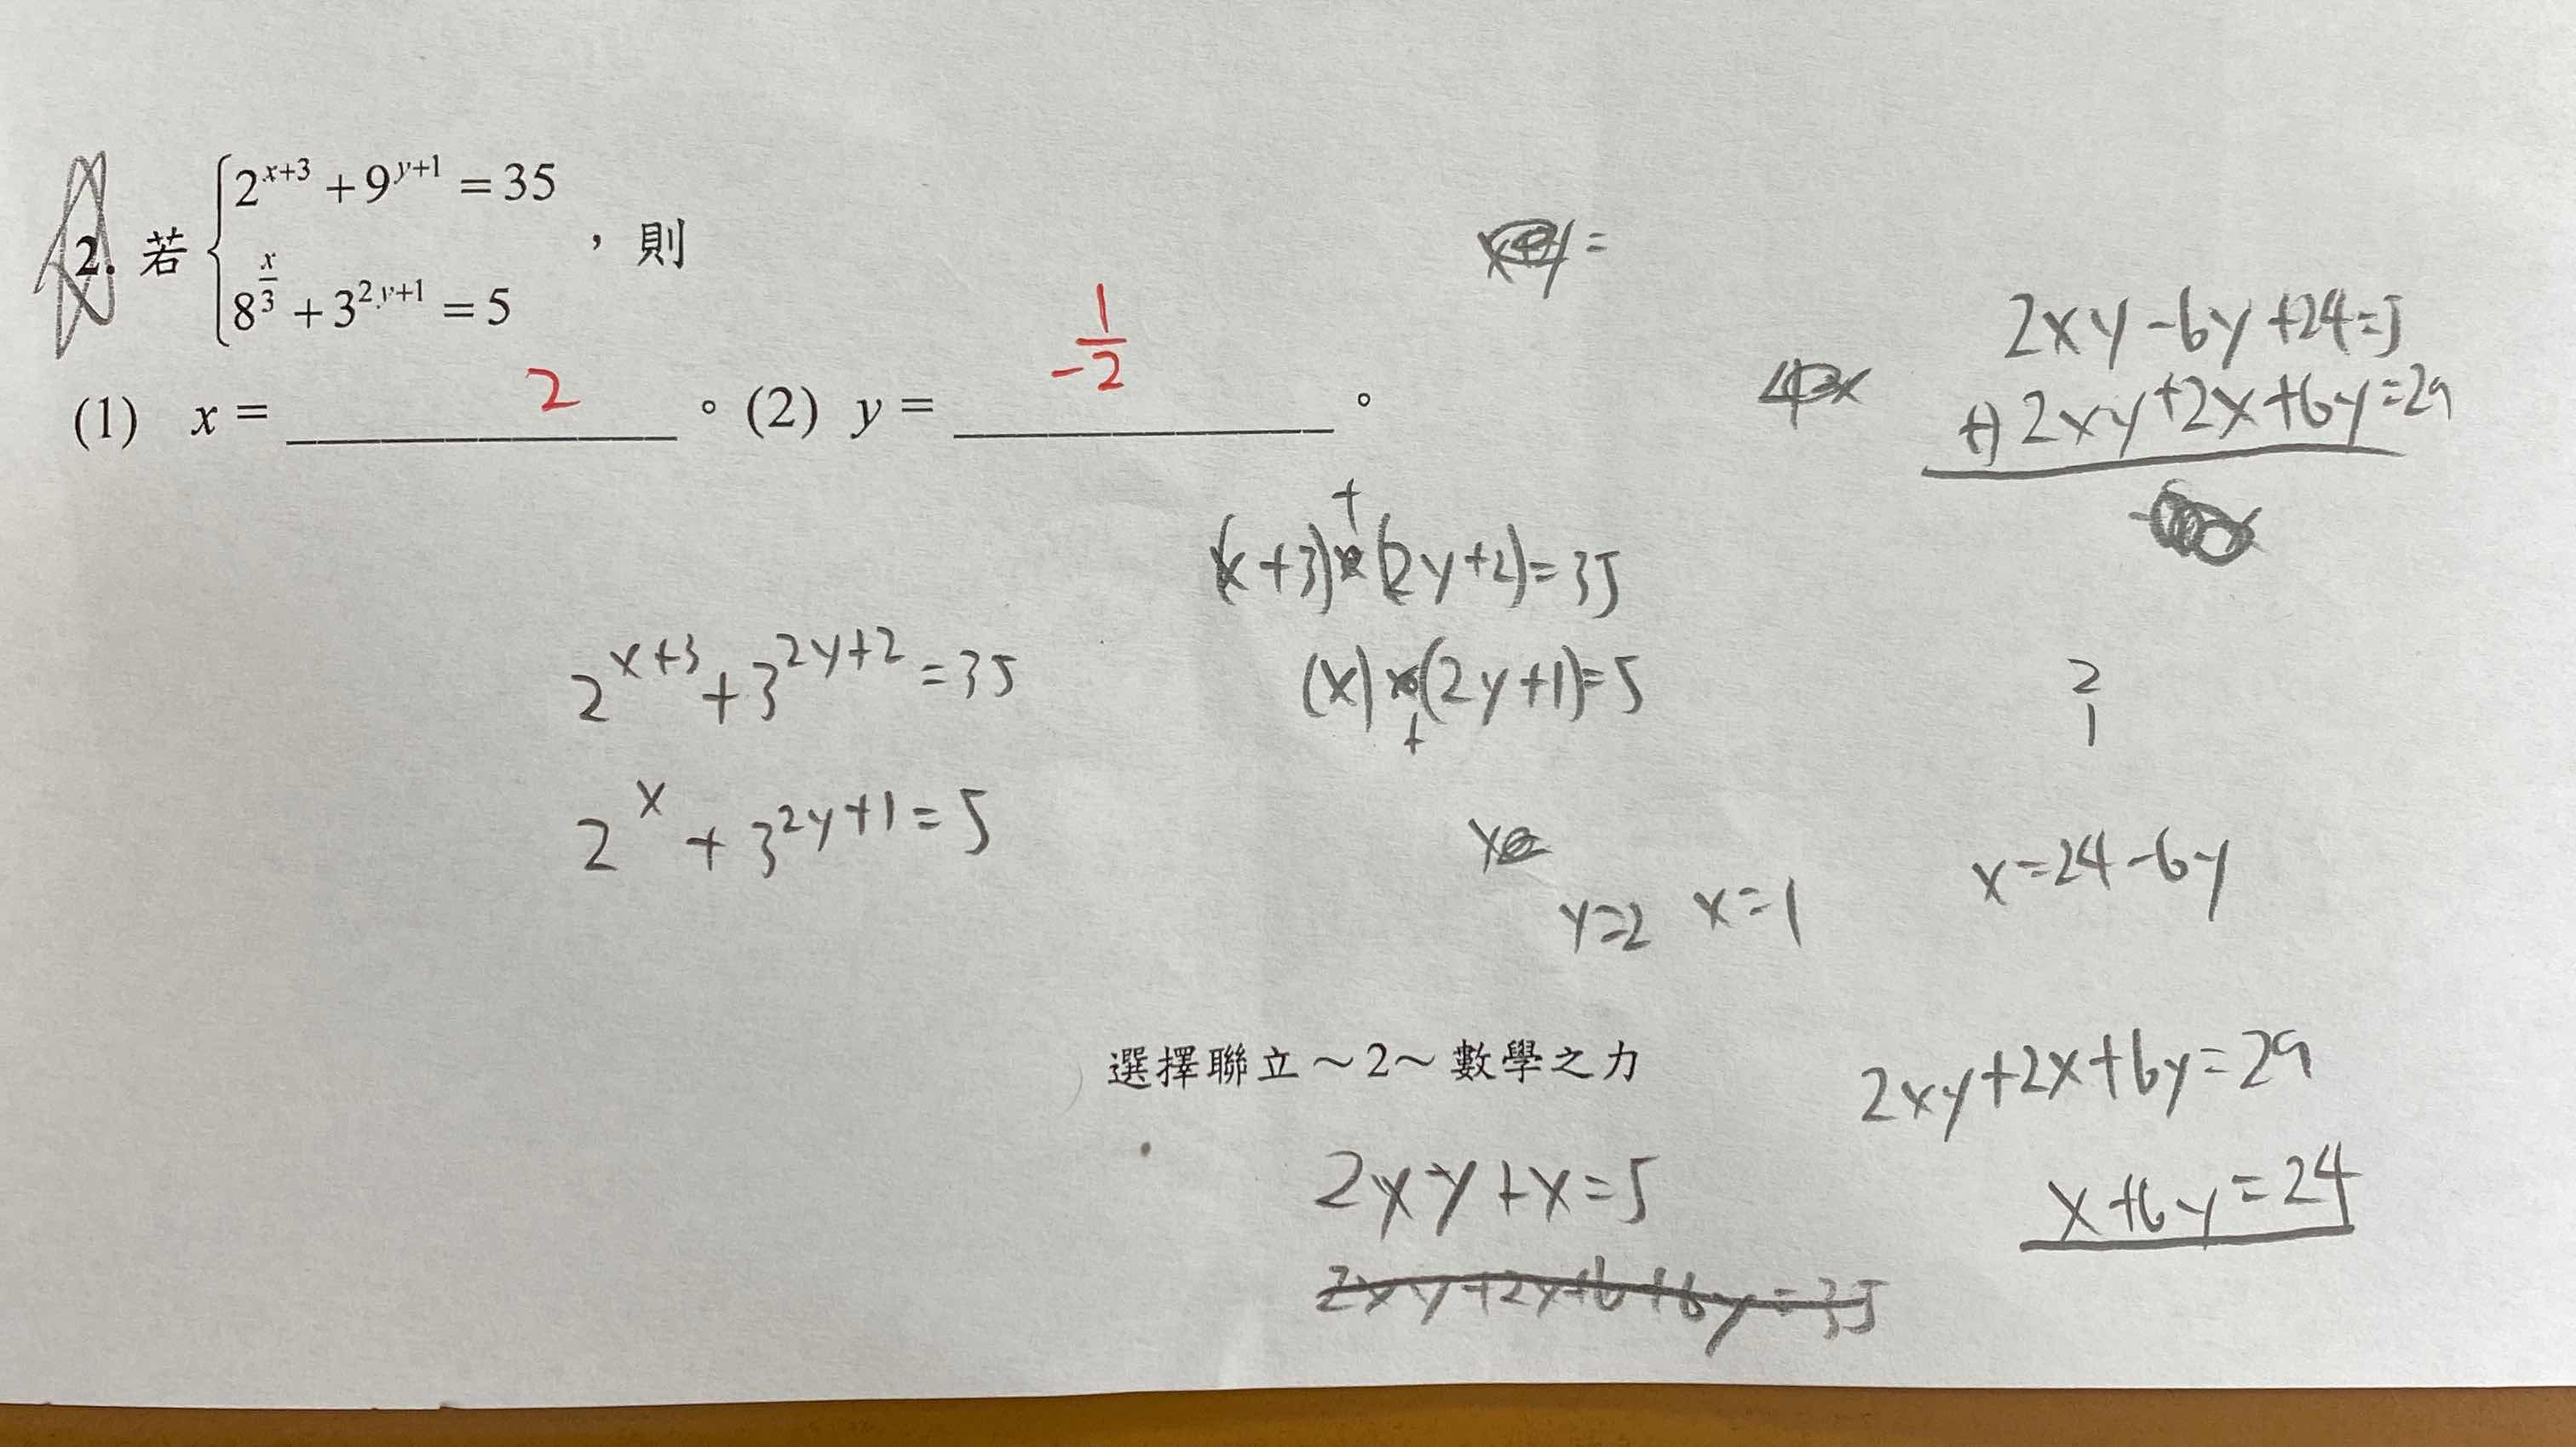 2. 若 { 2^{x+3} + 9^{y+1} = 35
8^{x/3} + 3^{2y+1} = 5 ，則
(1) x = 2 。(2) y = -1/2 。
2^{x+3} + 3^{2y+2} = 35
2^x + 3^{2y+1} = 5
(x+3) + (2y+2) = 35
(x) + (2y+1) = 5
y=2 x=1
2xy-6y+24=5
+) 2xy+2x+6y=29
2
1
x=24-6y
2xy+2x+6y=29
x+6y=24
選擇聯立～2～數學之力
2xy+x=5
2xy+2x+6+6y=35